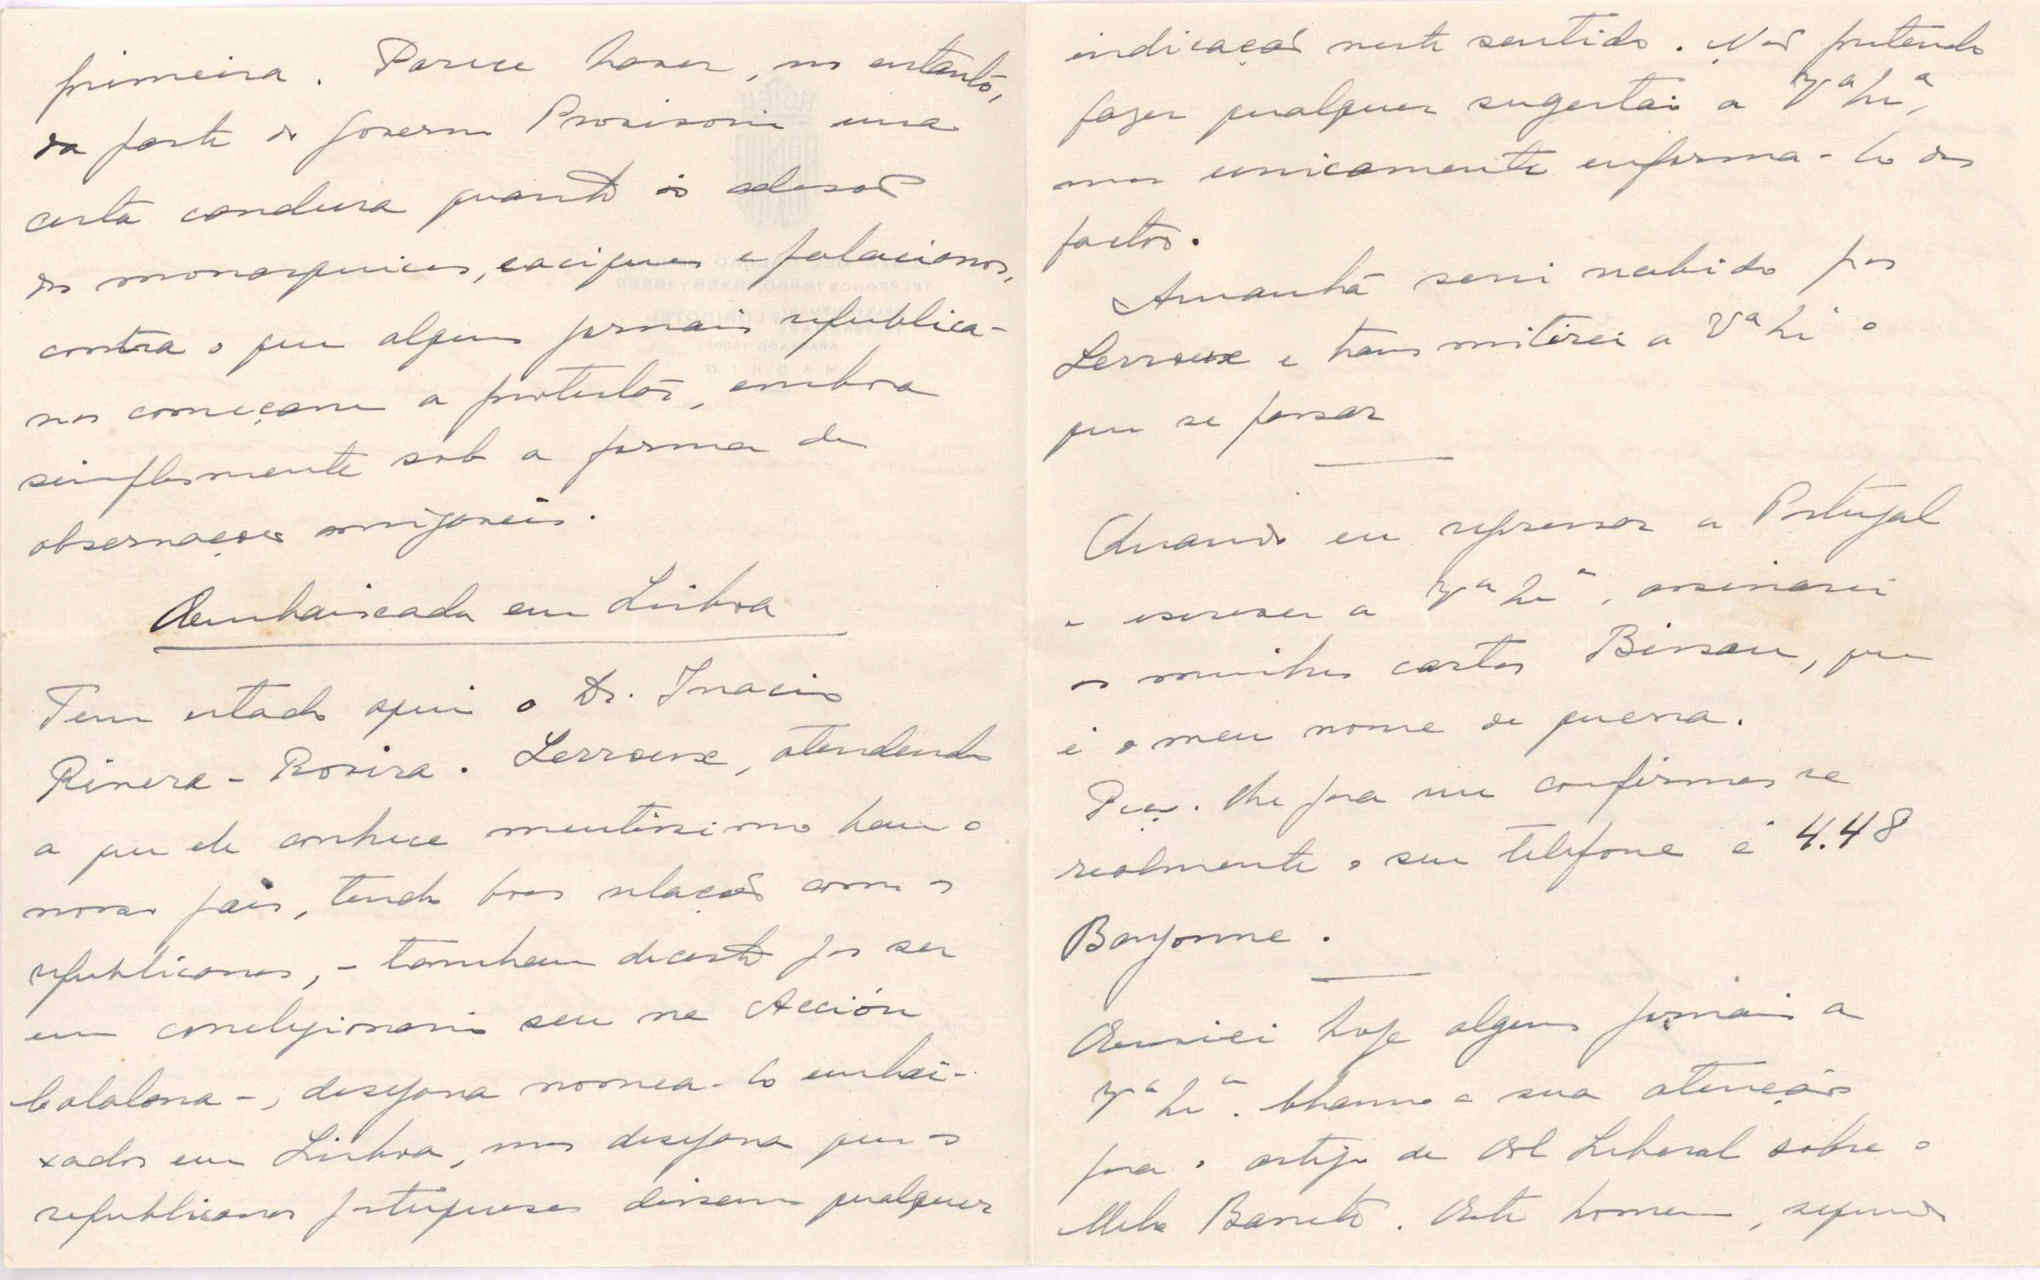 primeira. Parece haver, no entanto,
da parte do Governo Provisorio uma
certa candura quanto às adesões
dos monarquicos, caciques e palacianos,
contra o que alguns jornais republica-
nos começam a protestar, embora
simplesmente sob a forma de
observações amigaveis.
Embaixada em Lisboa
Tem estado aqui o Dr. Inacio
Rivera-Rovira. Lerroux, atendendo
a que ele conhece muitissimo bem o
nosso país, tendo boas relações com os
republicanos, - tambem decerto por ser
um correligionario seu na Acción
Catalana -, desejava nomea-lo embai-
xador em Lisboa, mas desejava que os
republicanos portugueses dissem qualquer
indicação neste sentido. Não pretendo
fazer qualquer sugestão a Vª Exª,
mas unicamente informa-lo dos
factos.
Amanhã serei recebido por
Lerroux e transmitirei a Vª Exª o
que se passar
Quando eu regressar a Portugal
e escrever a Vª Exª, assinarei
as minhas cartas Bissau, que
é o meu nome de guerra.
Peço-lhe para me confirmar se
realmente o seu telefone é 4.48
Bayonne.
Enviei hoje alguns jornais a
Vª Exª. Chamo a sua atenção
para o artigo de El Liberal sobre o
Melo Barreto. Este homem, segundo